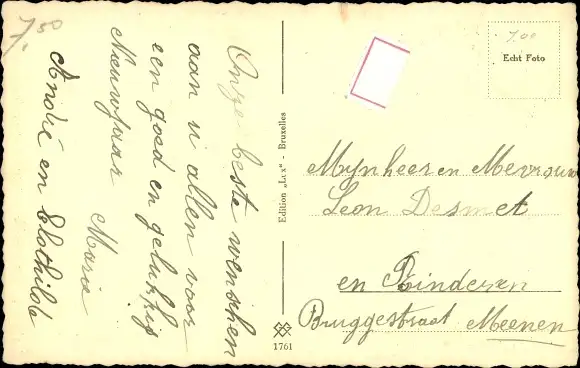 7.50
Onze beste wenschen
aan u allen voor
een goed en gelukkig
Nieuwjaar
Maria
André en Clothilde
Edition „Lux" - Bruxelles
1761
7.00
Echt Foto
Mynheer en Mevrouw
Leon Desmet
en Kinderen
Bruggestraat Meenen